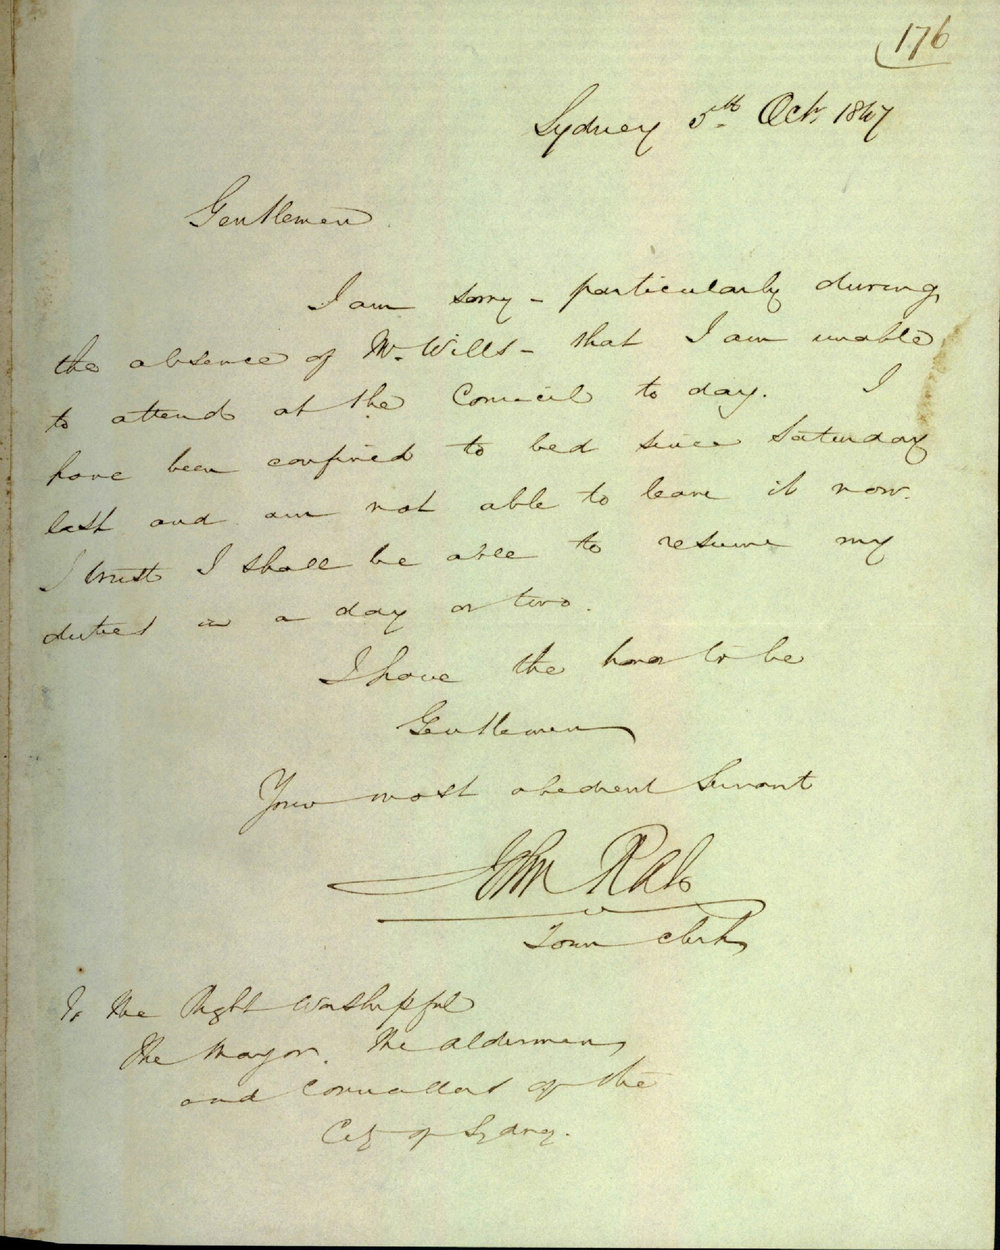 176
Sydney 5th Octr. 1847
Gentlemen
I am sorry - particularly during
the absence of Mr. Wills - that I am unable
to attend at the Council to day. I
have been confined to bed since Saturday
last and am not able to leave it now.
I trust I shall be able to resume my
duties in a day or two.
I have the honor to be
Gentlemen
Your most obedient Servant
John Rae
Town Clerk
To the Right Worshipful
The Mayor. The Aldermen
and Councillors of the
City of Sydney.